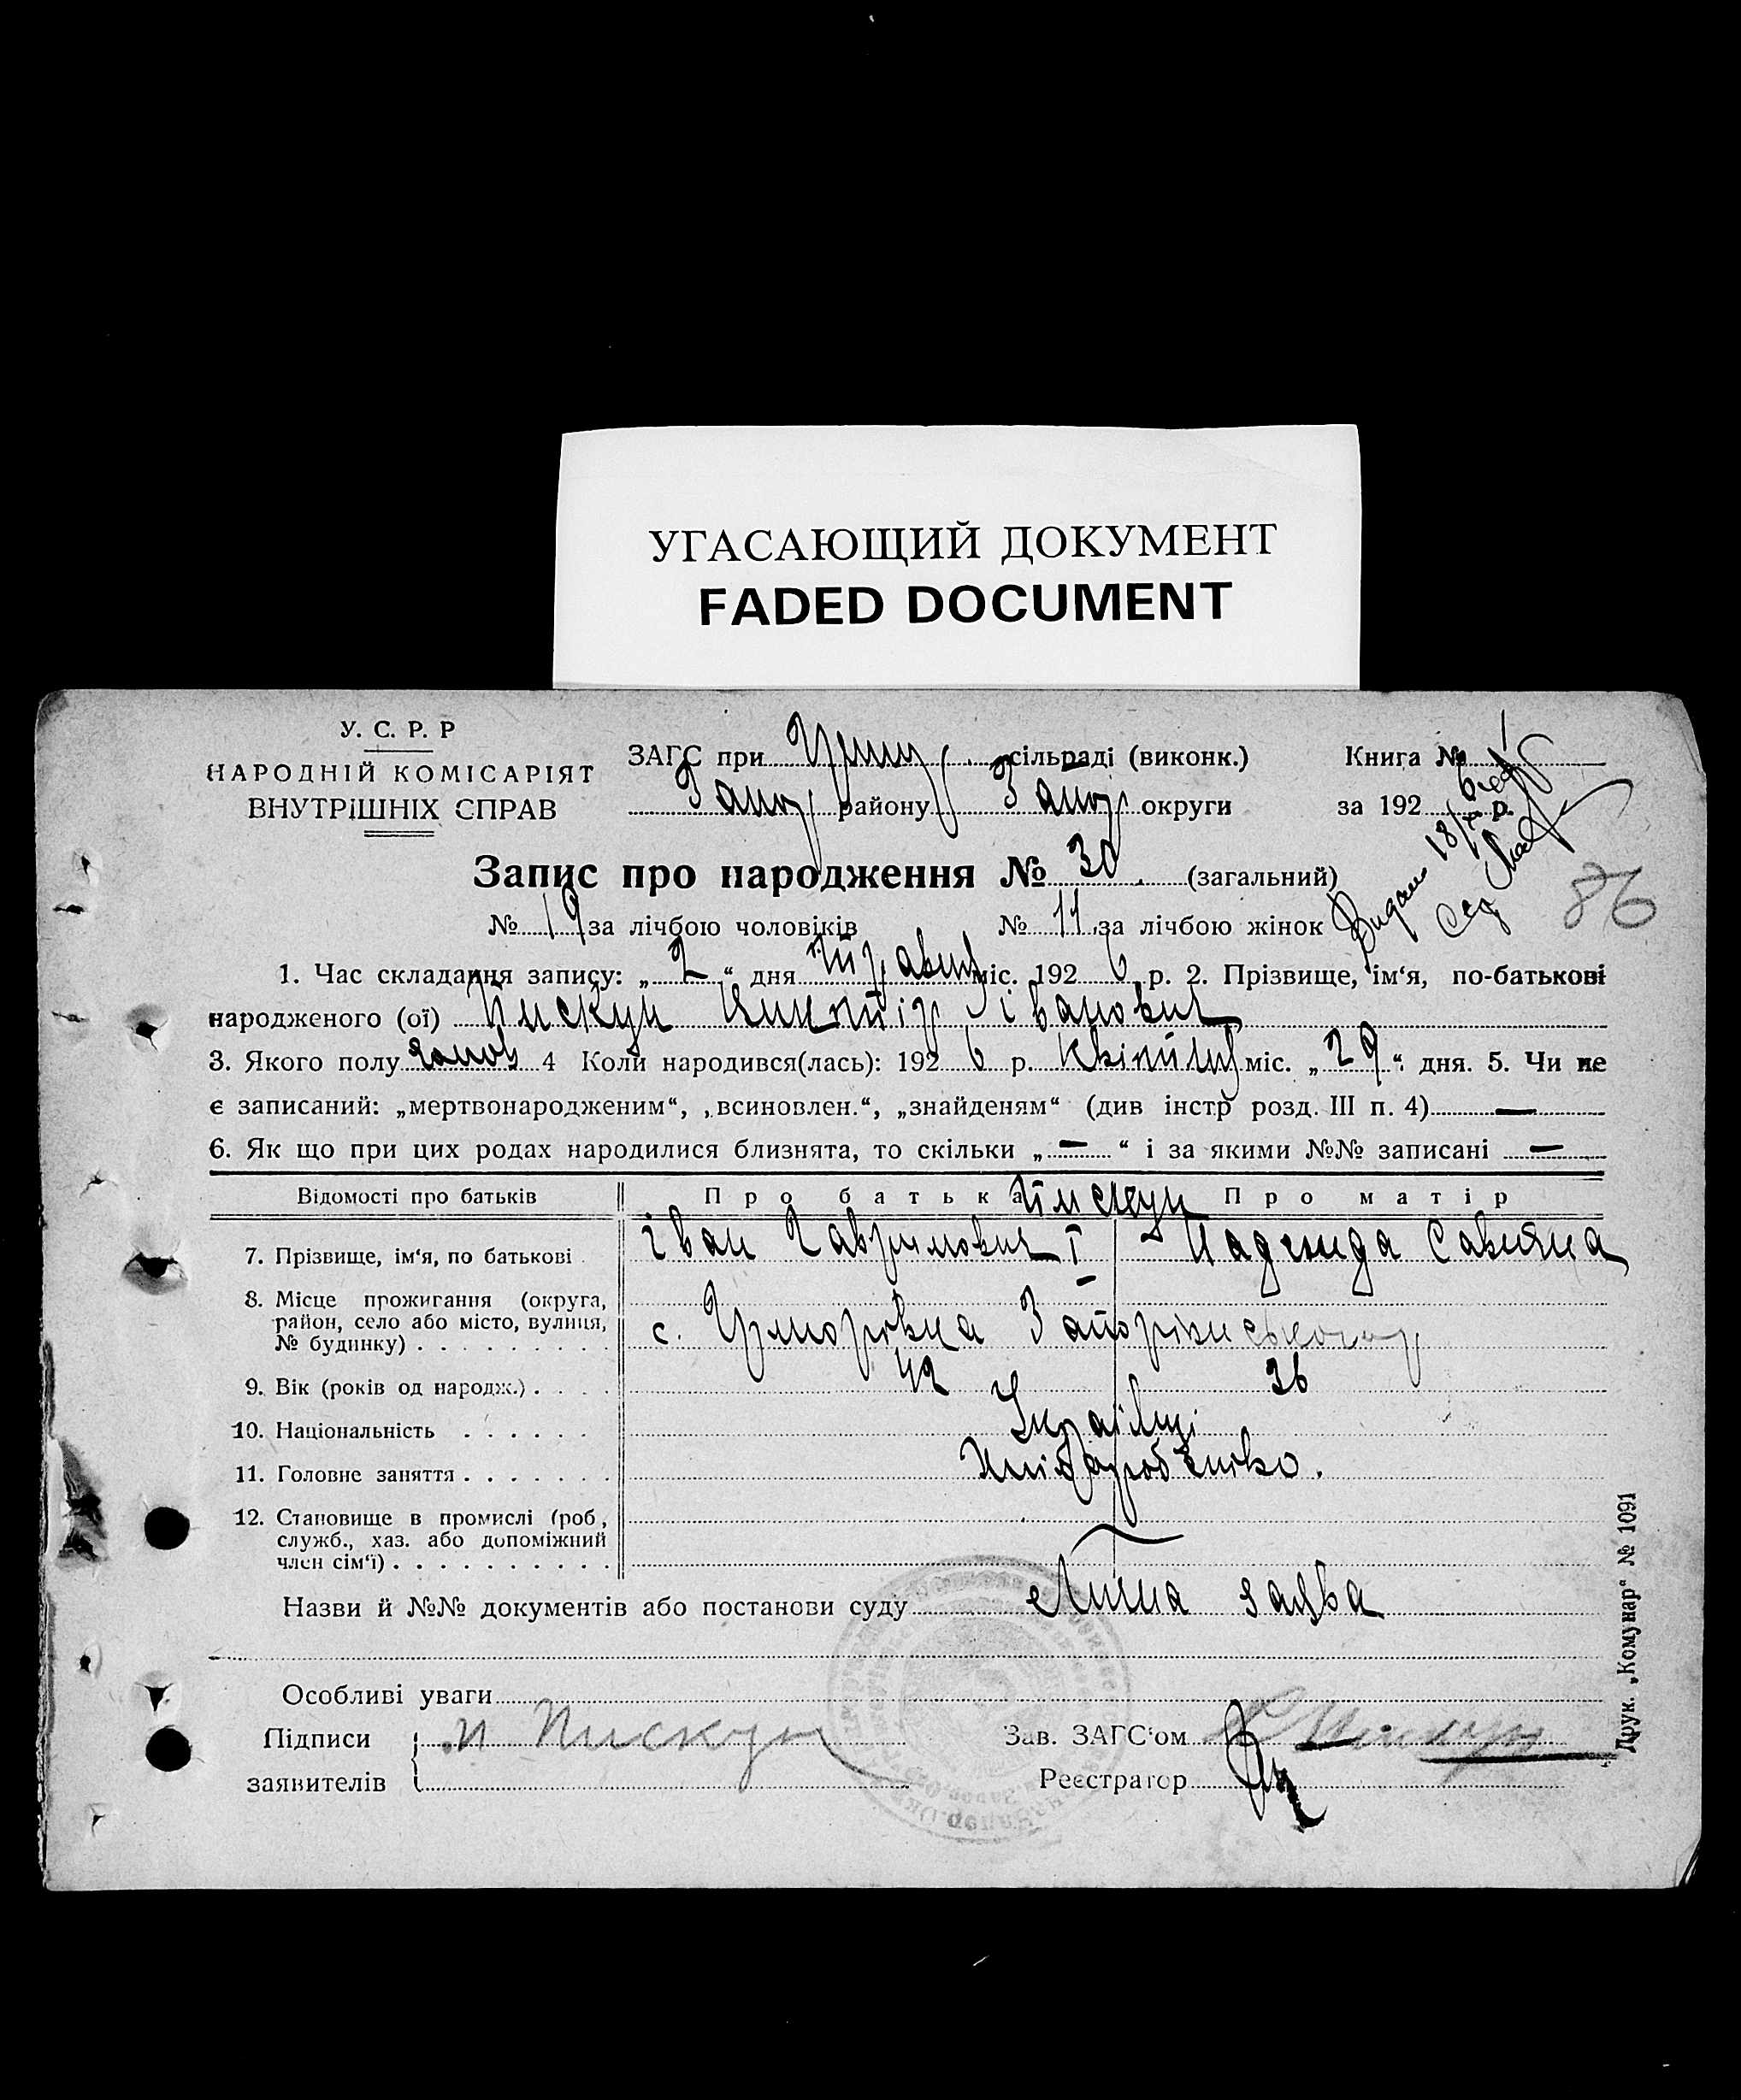 УГАСАЮЩИЙ ДОКУМЕНТ
FADED DOCUMENT
У. С. Р. Р
НАРОДНІЙ КОМІСАРІЯТ
ВНУТРІШНІХ СПРАВ
ЗАГС при сільраді (виконк.)
Запор району Запор округи
Книга №
за 192 6 р.
86
Запис про народження № 30 (загальний)
№ 19 за лічбою чоловіків № 11 за лічбою жінок
1. Час складання запису: „ 2 “ дня міс. 192 6 р. 2. Прізвище, ім‘я, по-батькові
народженого (ої) Пискун Іванович
3. Якого полу чолов 4 Коли народився(лась): 192 6 р. квітня міс. „ 29 “ дня. 5. Чи не
є записаний: „мертвонародженим“, „всиновлен.“, „знайденям“ (див інстр розд. III п. 4) —
6. Як що при цих родах народилися близнята, то скільки „ — “ і за якими №№ записані —
Відомості про батьків Про батька Про матір
Пискун
7. Прізвище, ім‘я, по батькові Іван Гаврилович і Надежда
8. Місце прожигання (округа,
район, село або місто, вулиця,
№ будинку) с.
9. Вік (років од народж.) 42 36
10. Національність Українці
11. Головне заняття Хліборобство.
12. Становище в промислі (роб,
служб., хаз. або допоміжний
член сім‘ї)
Назви й №№ документів або постанови суду Лична заява
Особливі уваги
Підписи И Пискун Зав. ЗАГС‘ом
заявителів Реєстратор
Друк. „Комунар“ № 1091